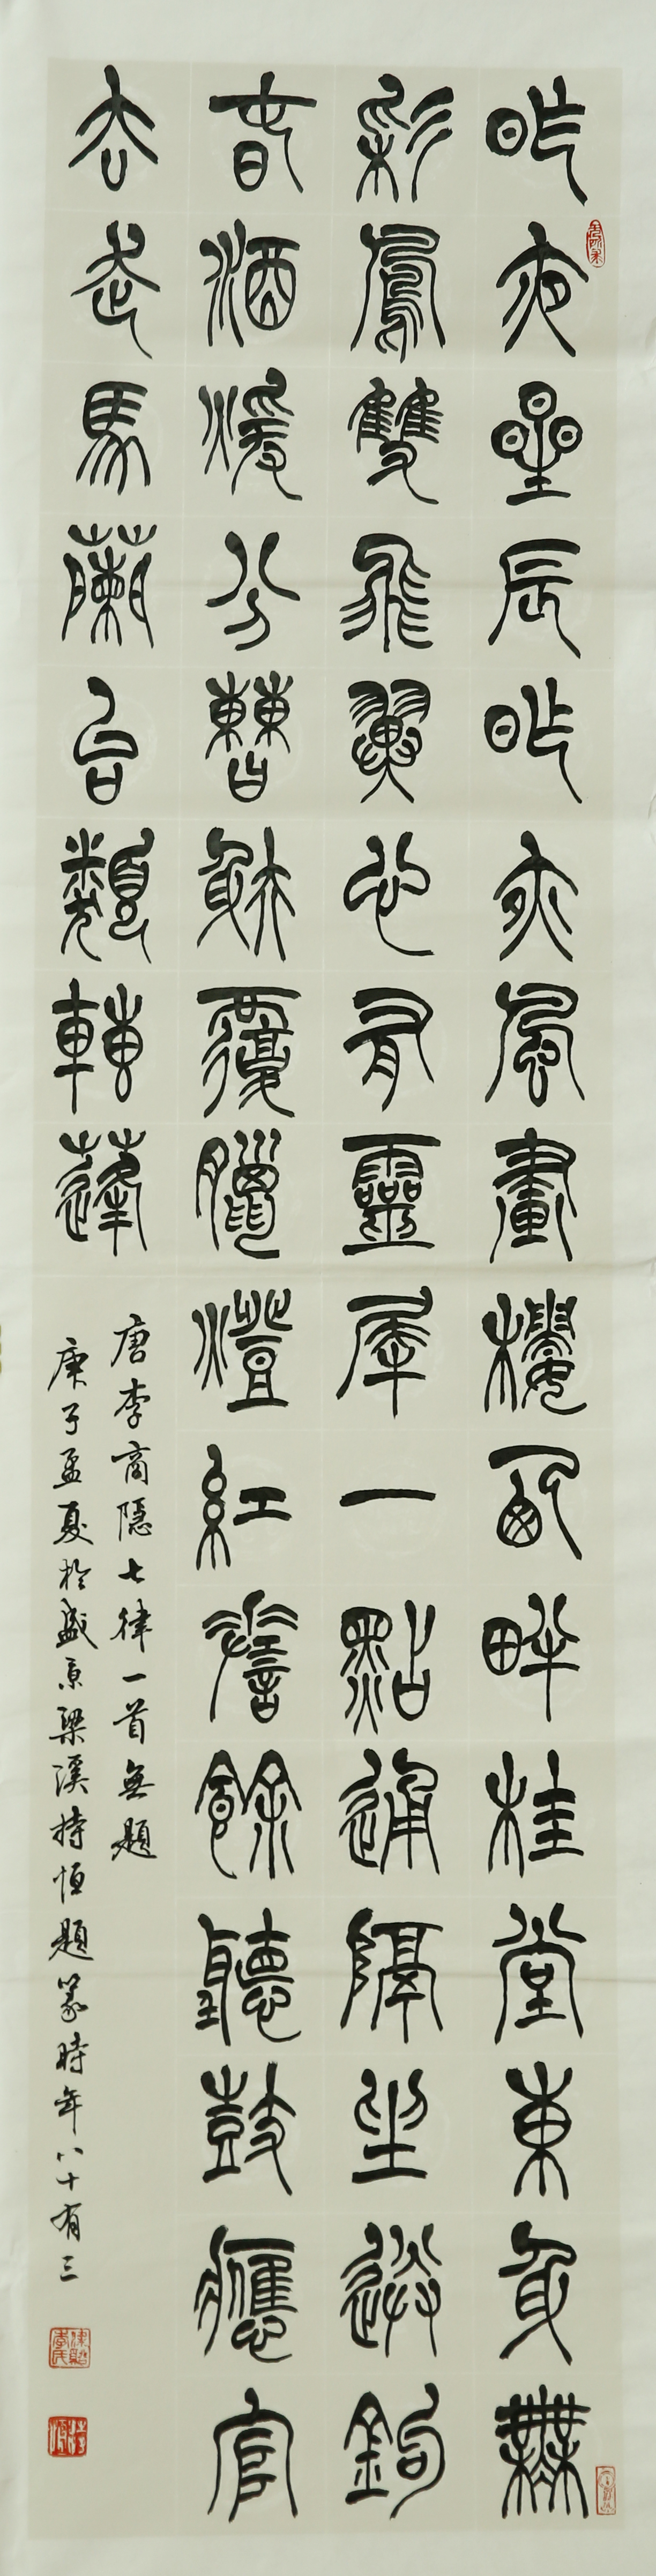 昨夜星辰昨夜風畫樓西畔桂堂東身無
彩鳳雙飛翼心有靈犀一點通隔坐送鉤
春酒煖分曹射覆臘燈紅嗟餘聽鼓應官
去走馬蘭台類轉蓬
唐李商隱七律一首無題
庚子孟夏於盛京梁溪持恒題篆時年八十有三
持恒